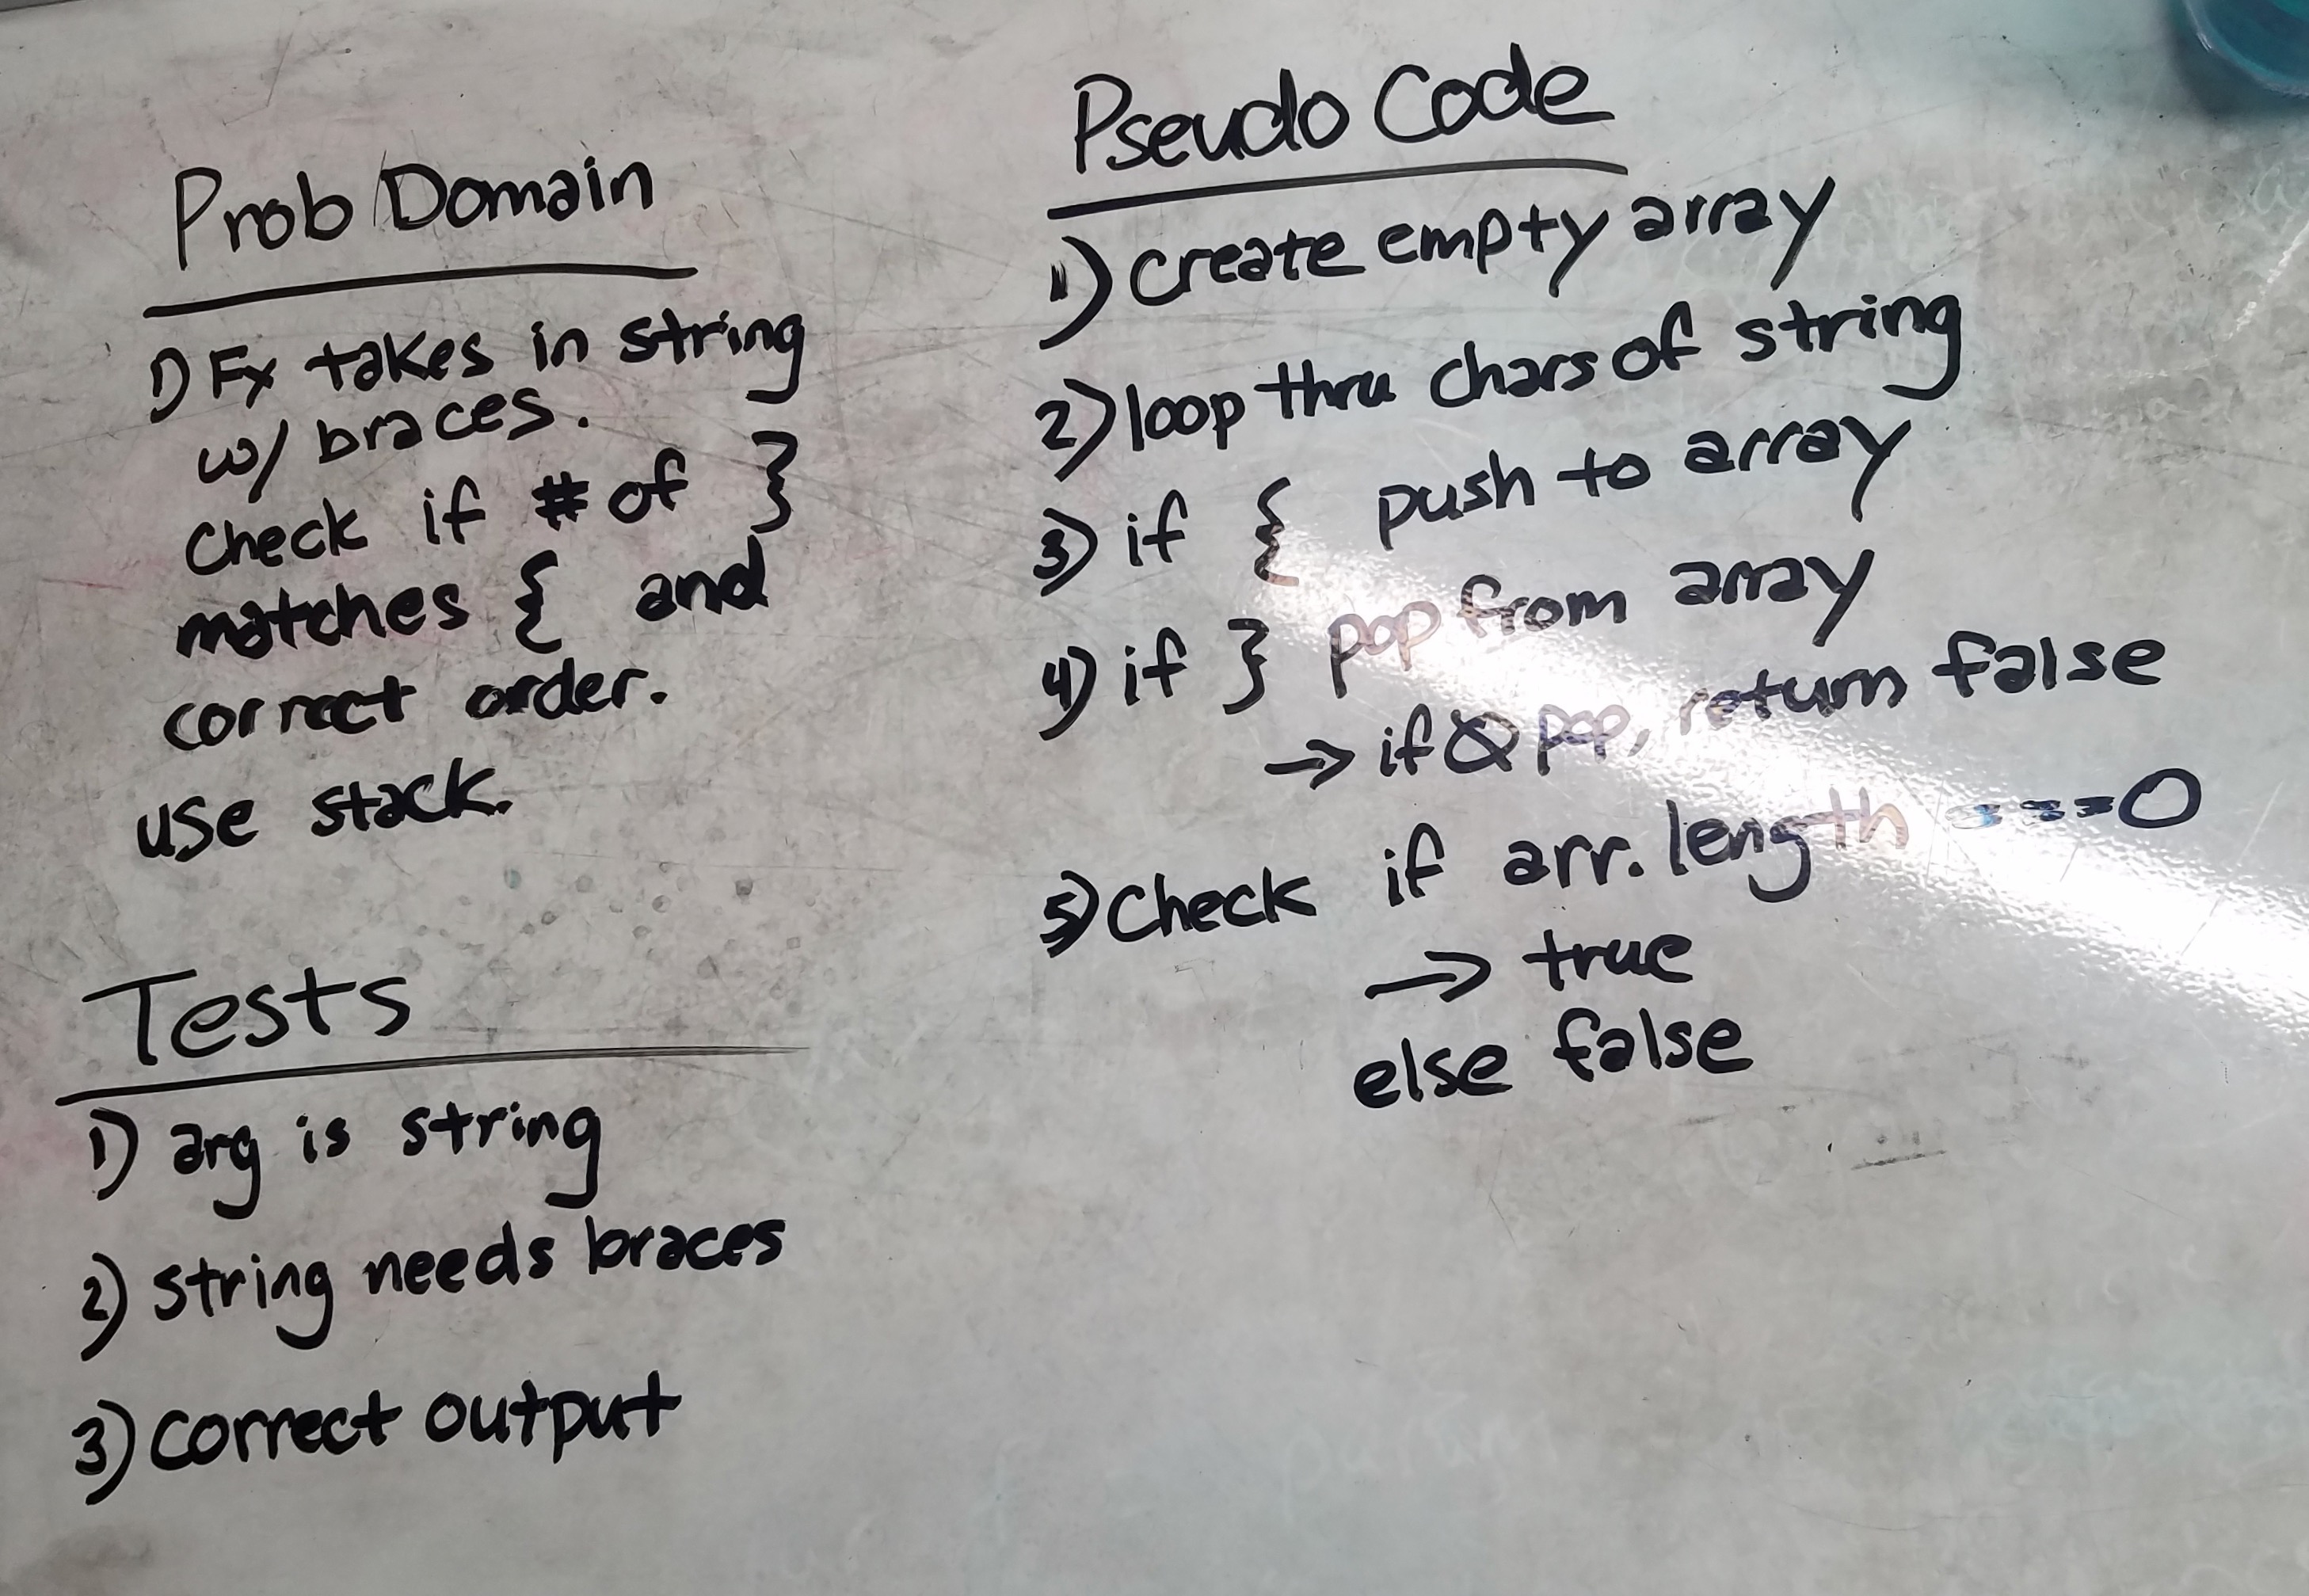 Prob Domain
1) Fx takes in string
w/ braces.
Check if # of }
matches { and
correct order.
use stack.
Tests
1) arg is string
2) string needs braces
3) correct output
Pseudo Code
1) create empty array
2) loop thru chars of string
3) if { push to array
4) if } pop from array
→ if Ø pop, return false
5) Check if arr.length === 0
→ true
else false